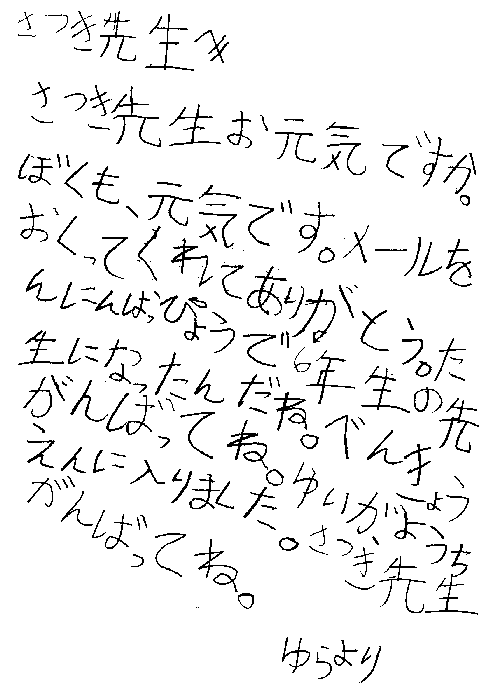 さつき先生へ
さつき先生お元気ですか。
ぼくも、元気です。メールを
おくってくれてありがとう。た
んにんはっぴょうで6年生の先
生になったんだね。べんきょう
がんばってね。ゆいがようち
えんに入りました。さつき先生
がんばってね。
ゆらより